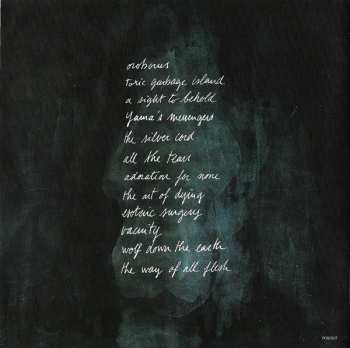 oroborus
toxic garbage island
a sight to behold
Yama's messengers
the silver cord
all the tears
adoration for none
the art of dying
esoteric surgery
vacuity
wolf down the earth
the way of all flesh